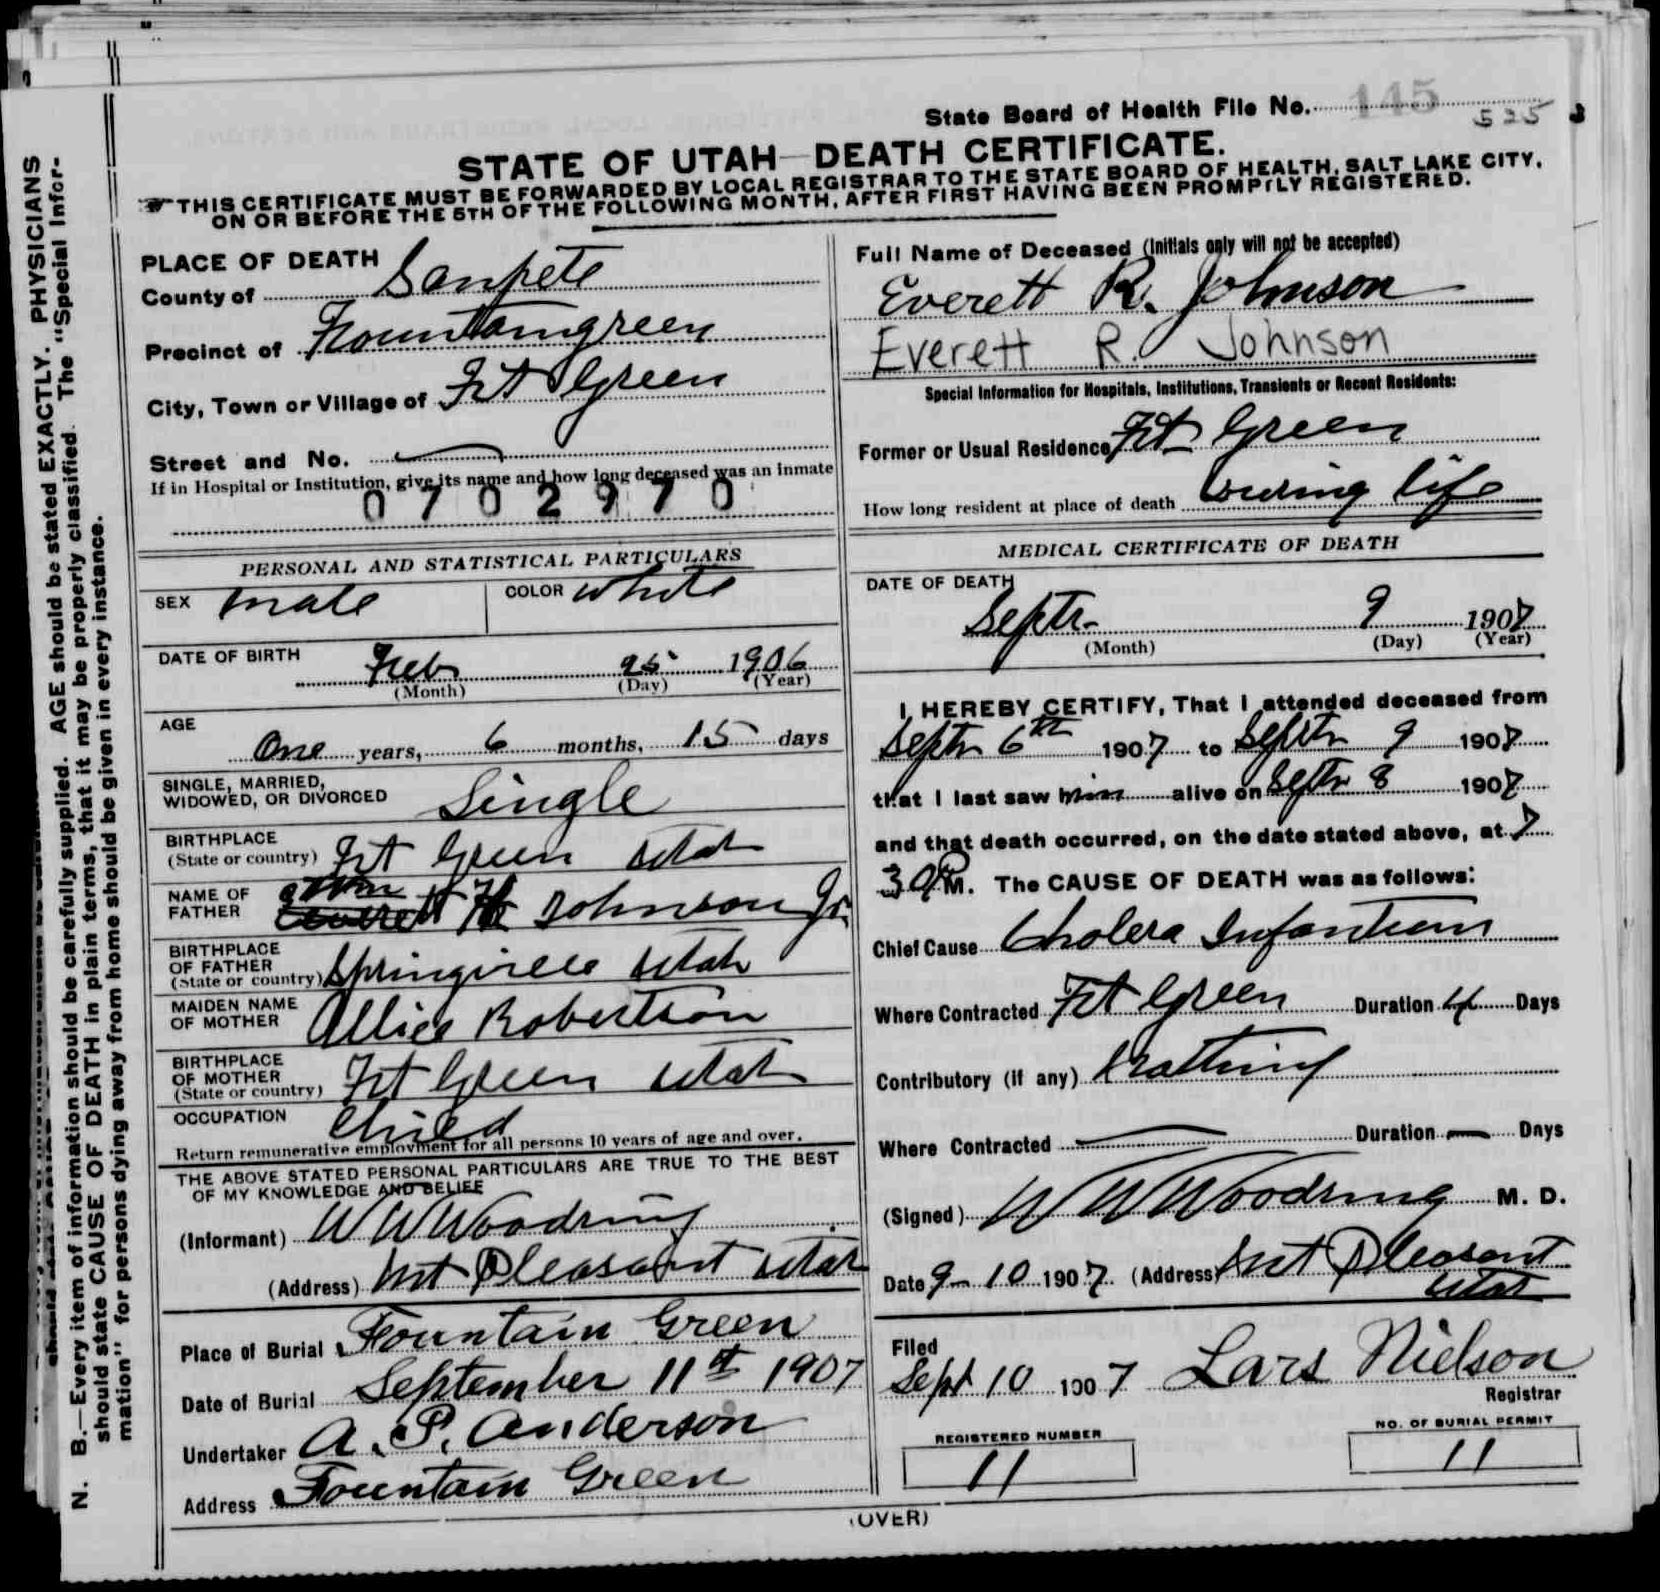 State Board of Health File No. 145
525
STATE OF UTAH—DEATH CERTIFICATE.
THIS CERTIFICATE MUST BE FORWARDED BY LOCAL REGISTRAR TO THE STATE BOARD OF HEALTH, SALT LAKE CITY,
ON OR BEFORE THE 5TH OF THE FOLLOWING MONTH, AFTER FIRST HAVING BEEN PROMPTLY REGISTERED.
PLACE OF DEATH
County of Sanpete
Precinct of Fountaingreen
City, Town or Village of Ft Green
Street and No. —
If in Hospital or Institution, give its name and how long deceased was an inmate
0702970
PERSONAL AND STATISTICAL PARTICULARS
SEX male COLOR white
DATE OF BIRTH Feb 25 1906
(Month) (Day) (Year)
AGE
One years, 6 months, 15 days
SINGLE, MARRIED,
WIDOWED, OR DIVORCED Single
BIRTHPLACE
(State or country) Ft Green Utah
NAME OF
FATHER Johnson Jr.
BIRTHPLACE
OF FATHER
(State or country) Springville Utah
MAIDEN NAME
OF MOTHER Allice Robertson
BIRTHPLACE
OF MOTHER
(State or country) Ft Green Utah
OCCUPATION Child
Return remunerative employment for all persons 10 years of age and over.
THE ABOVE STATED PERSONAL PARTICULARS ARE TRUE TO THE BEST
OF MY KNOWLEDGE AND BELIEF
(Informant) W W Woodring
(Address) Mt Pleasant Utah
Place of Burial Fountain Green
Date of Burial September 11st 1907
Undertaker A. P. Anderson
Address Fountain Green
Full Name of Deceased (Initials only will not be accepted)
Everett R. Johnson
Everett R. Johnson
Special Information for Hospitals, Institutions, Transients or Recent Residents:
Former or Usual Residence Ft Green
How long resident at place of death During life
MEDICAL CERTIFICATE OF DEATH
DATE OF DEATH
Septr. 9 1907
(Month) (Day) (Year)
I HEREBY CERTIFY, That I attended deceased from
Septr 6th 1907 to Septr 9 1907
that I last saw him alive on Septr 8 1907
and that death occurred, on the date stated above, at 7
30 P M. The CAUSE OF DEATH was as follows:
Chief Cause Cholera Infantum
Where Contracted Ft Green Duration 4 Days
Contributory (if any) Nothing
Where Contracted — Duration — Days
(Signed) W W Woodring M. D.
Date 9-10 1907 (Address) Mt Pleasant
Utah
Filed
Sept 10 1907 Lars Nielson
Registrar
REGISTERED NUMBER
11
NO. OF BURIAL PERMIT
11
(OVER)
N. B.—Every item of information should be carefully supplied. AGE should be stated EXACTLY. PHYSICIANS
should state CAUSE OF DEATH in plain terms, that it may be properly classified. The "Special Infor-
mation" for persons dying away from home should be given in every instance.